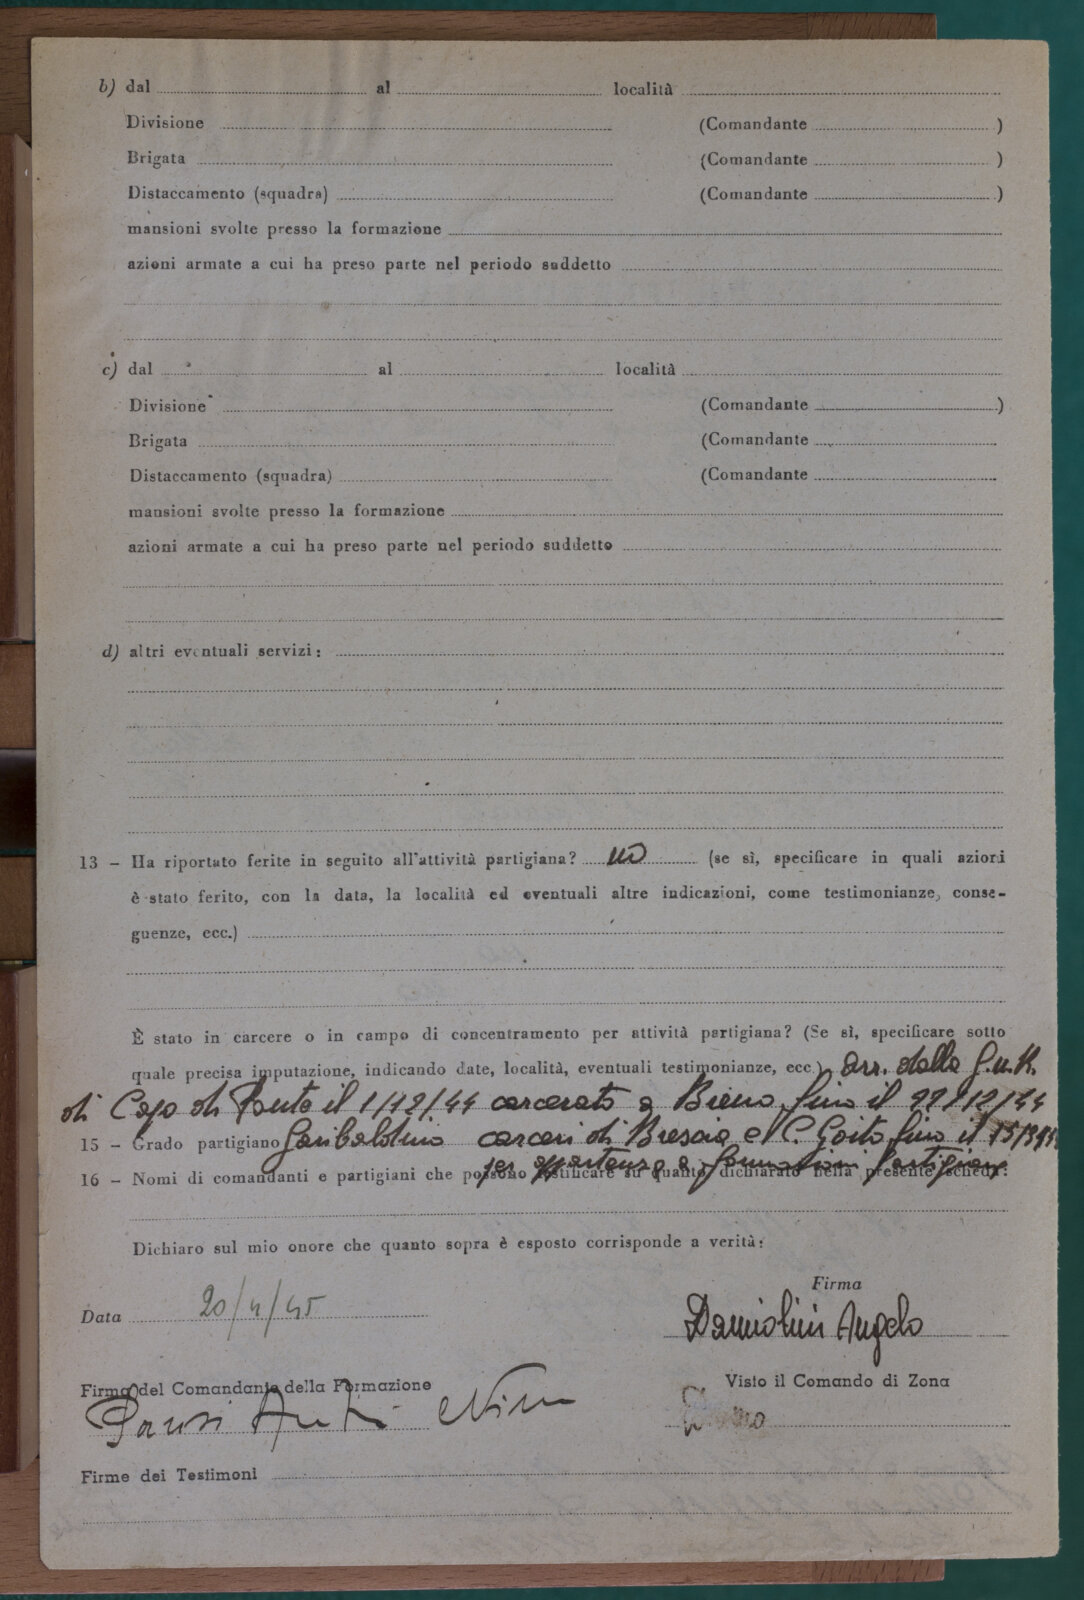 b) dal al località
Divisione (Comandante )
Brigata (Comandante )
Distaccamento (squadra) (Comandante )
mansioni svolte presso la formazione
azioni armate a cui ha preso parte nel periodo suddetto
c) dal al località
Divisione (Comandante )
Brigata (Comandante
Distaccamento (squadra) (Comandante
mansioni svolte presso la formazione
azioni armate a cui ha preso parte nel periodo suddetto
d) altri eventuali servizi:
13 - Ha riportato ferite in seguito all'attività partigiana? no (se sì, specificare in quali azioni
è stato ferito, con la data, la località ed eventuali altre indicazioni, come testimonianze, conse-
guenze, ecc.)
È stato in carcere o in campo di concentramento per attività partigiana? (Se sì, specificare sotto
quale precisa imputazione, indicando date, località, eventuali testimonianze, ecc.) arr. dalla G.n.R.
di Capo di Ponte il 1/12/44 carcerato a Breno fino il 22/12/44
15 - Grado partigiano Garibaldino carceri di Brescia e C. Goito fino il
per appartenza a formazioni Partigiane
16 - Nomi di comandanti e partigiani che possono testificare su quanto dichiarato nella presente scheda:
Dichiaro sul mio onore che quanto sopra è esposto corrisponde a verità:
Firma
Data 20/4/45 Damiolini Angelo
Firma del Comandante della Formazione Visto il Comando di Zona
Nino
Firme dei Testimoni